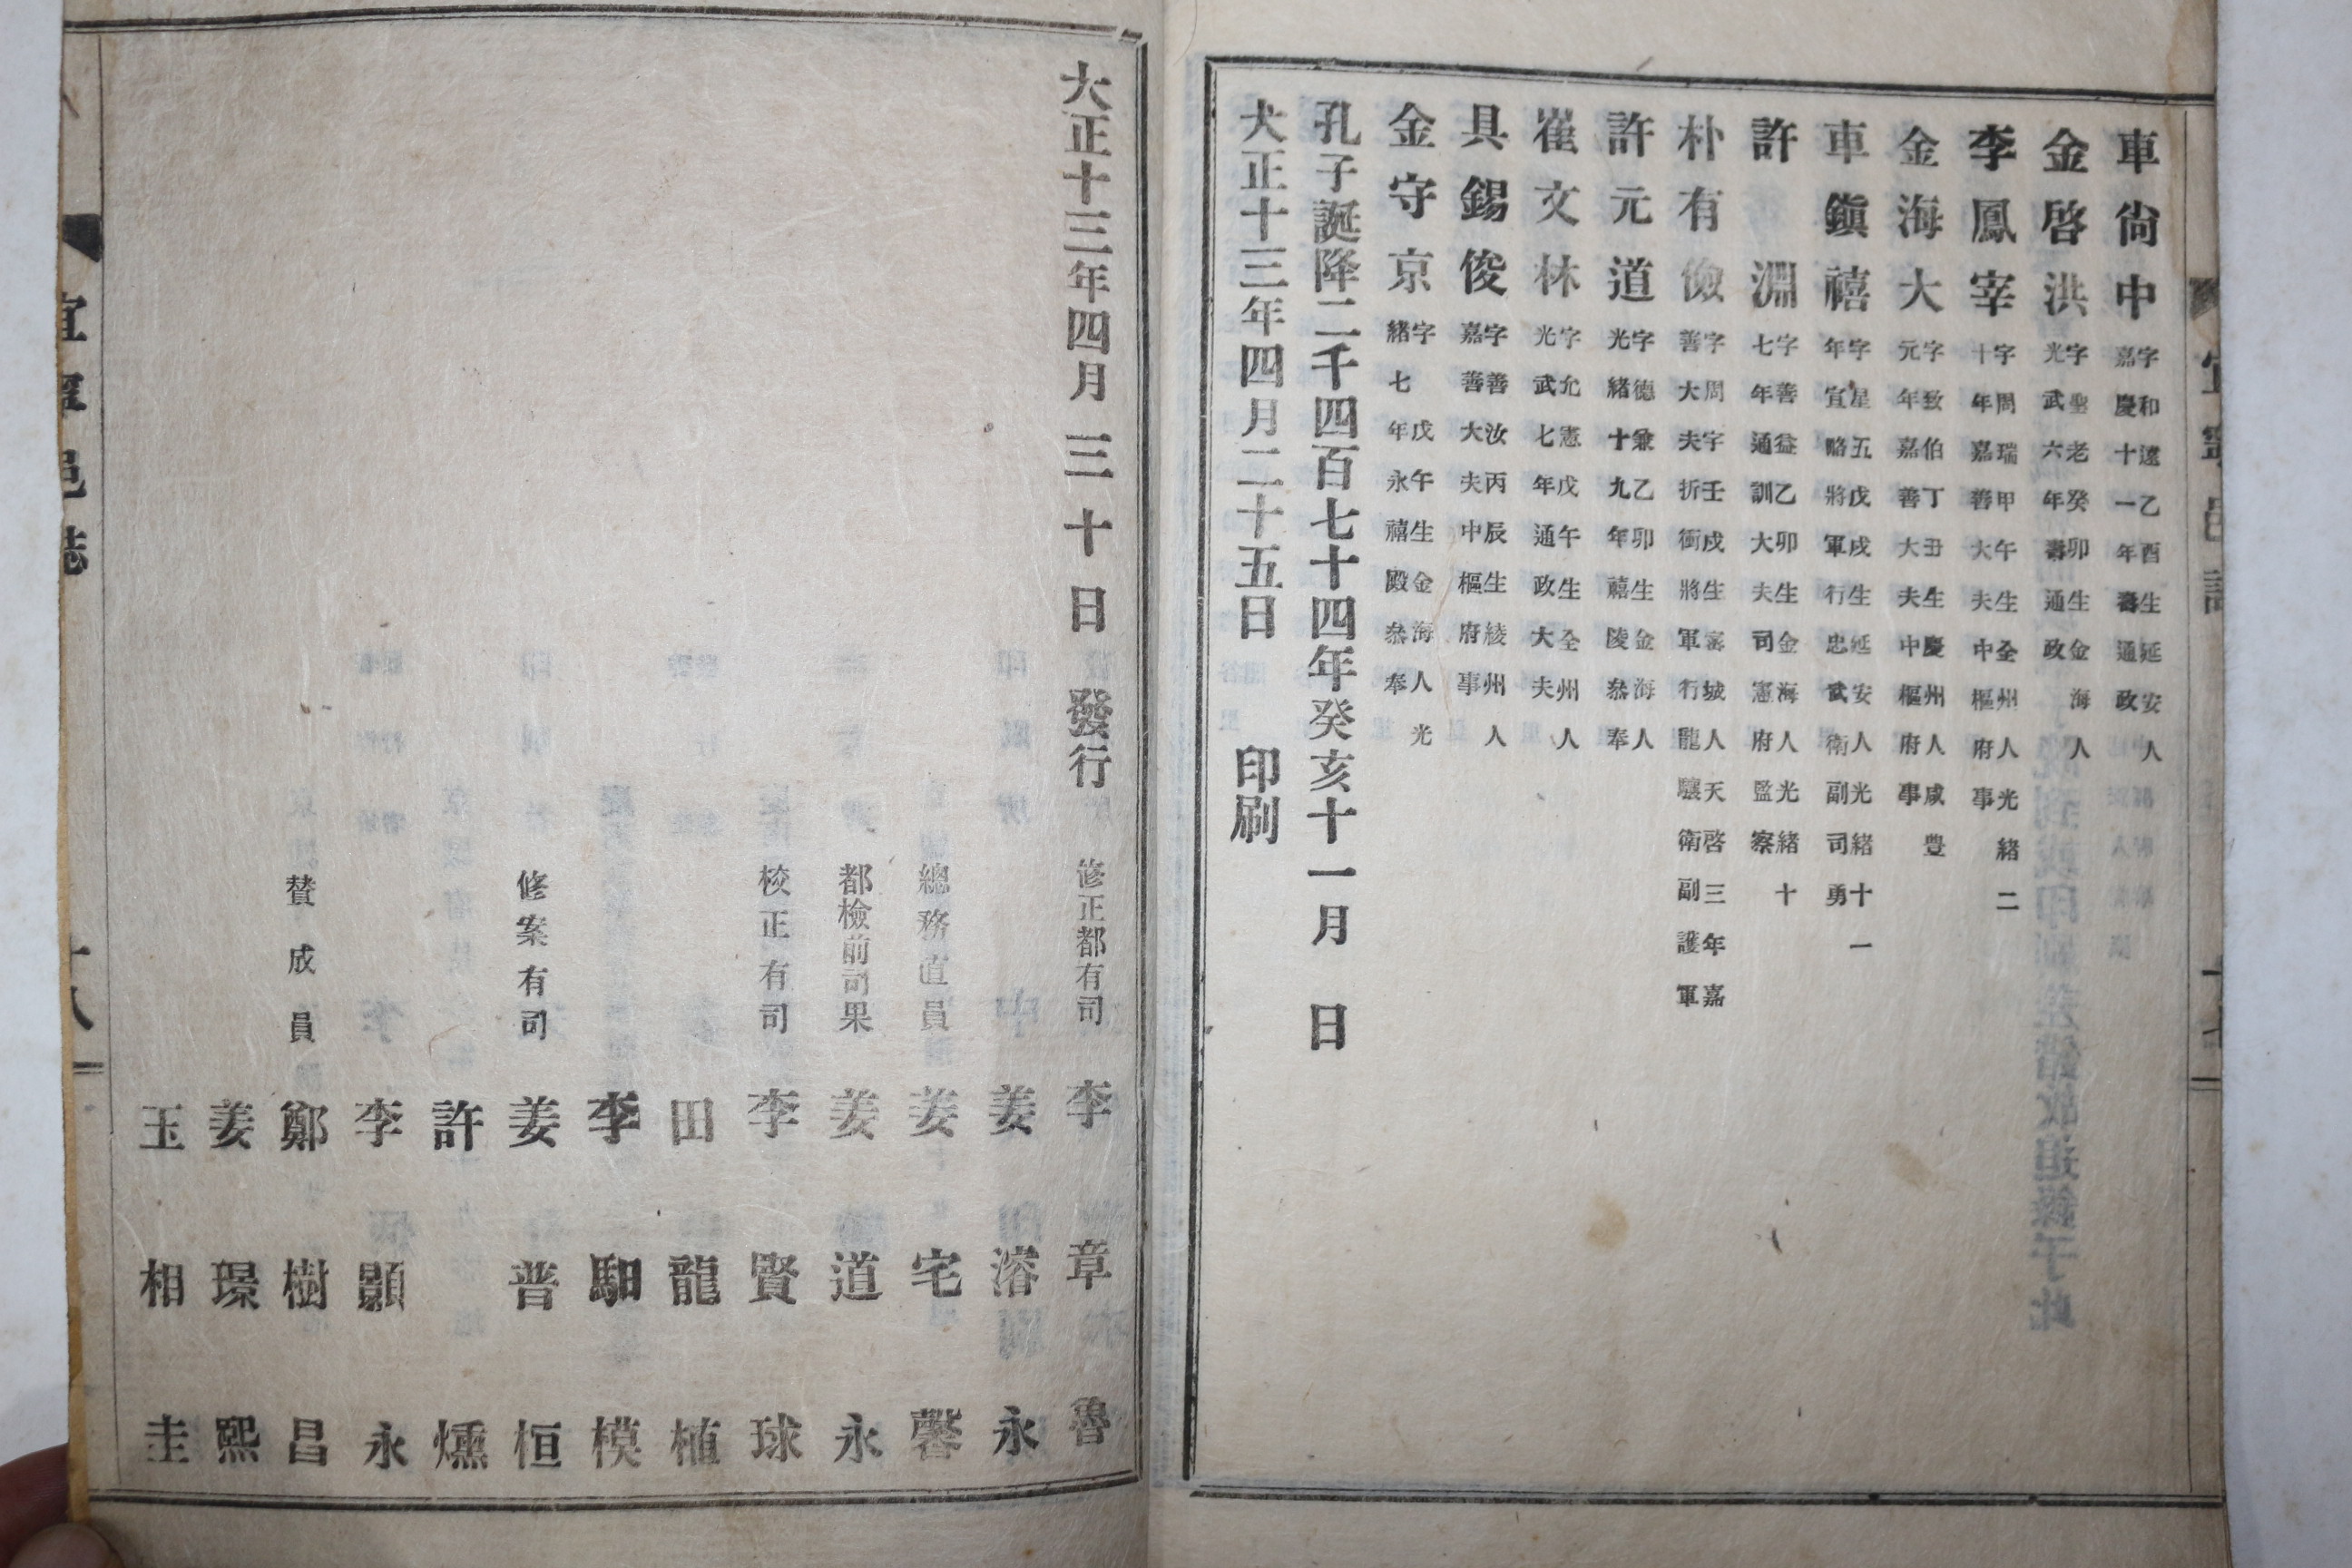 車尙中 字和遠乙酉生延安人嘉慶十一年壽通政
金啓洪 字聖老癸卯生金海人光武六年壽通政
李鳳宰 字周瑞甲午生全州人光緒二十年嘉善大夫中樞府事
金海大 字致伯丁丑生慶州人咸豊元年嘉善大夫中樞府事
車鎭禧 字星五戊戌生延安人光緒十一年宣略將軍行忠武衛副司勇
許淵 字善益乙卯生金海人光緒十七年通訓大夫司憲府監察
朴有儉 字周字壬戌生密城人天啓三年嘉善大夫折衝將軍行龍驤衛副護軍
許元道 字德兼乙卯生金海人光緖十九年禧陵叅奉
崔文林 字允憲戊午生全州人光武七年通政大夫
具錫俊 字善汝丙辰生綾州人嘉善大夫中樞府事
金守京 字戊午生金海人光緖七年永禧殿叅奉
孔子誕降二千四百七十四年癸亥十一月 日
大正十三年四月二十五日 印刷
宜寧邑誌
大正十三年四月三十日發行 修正都有司 李章魯
姜濬永
總務直員 姜宅馨
都檢前司果 姜道永
校正有司 李賢球
田龍植
李馹模
修案有司 姜普桓
許爋
李顯永
賛成員 鄭樹昌
姜璟熙
玉相圭
宜寧邑誌
十八